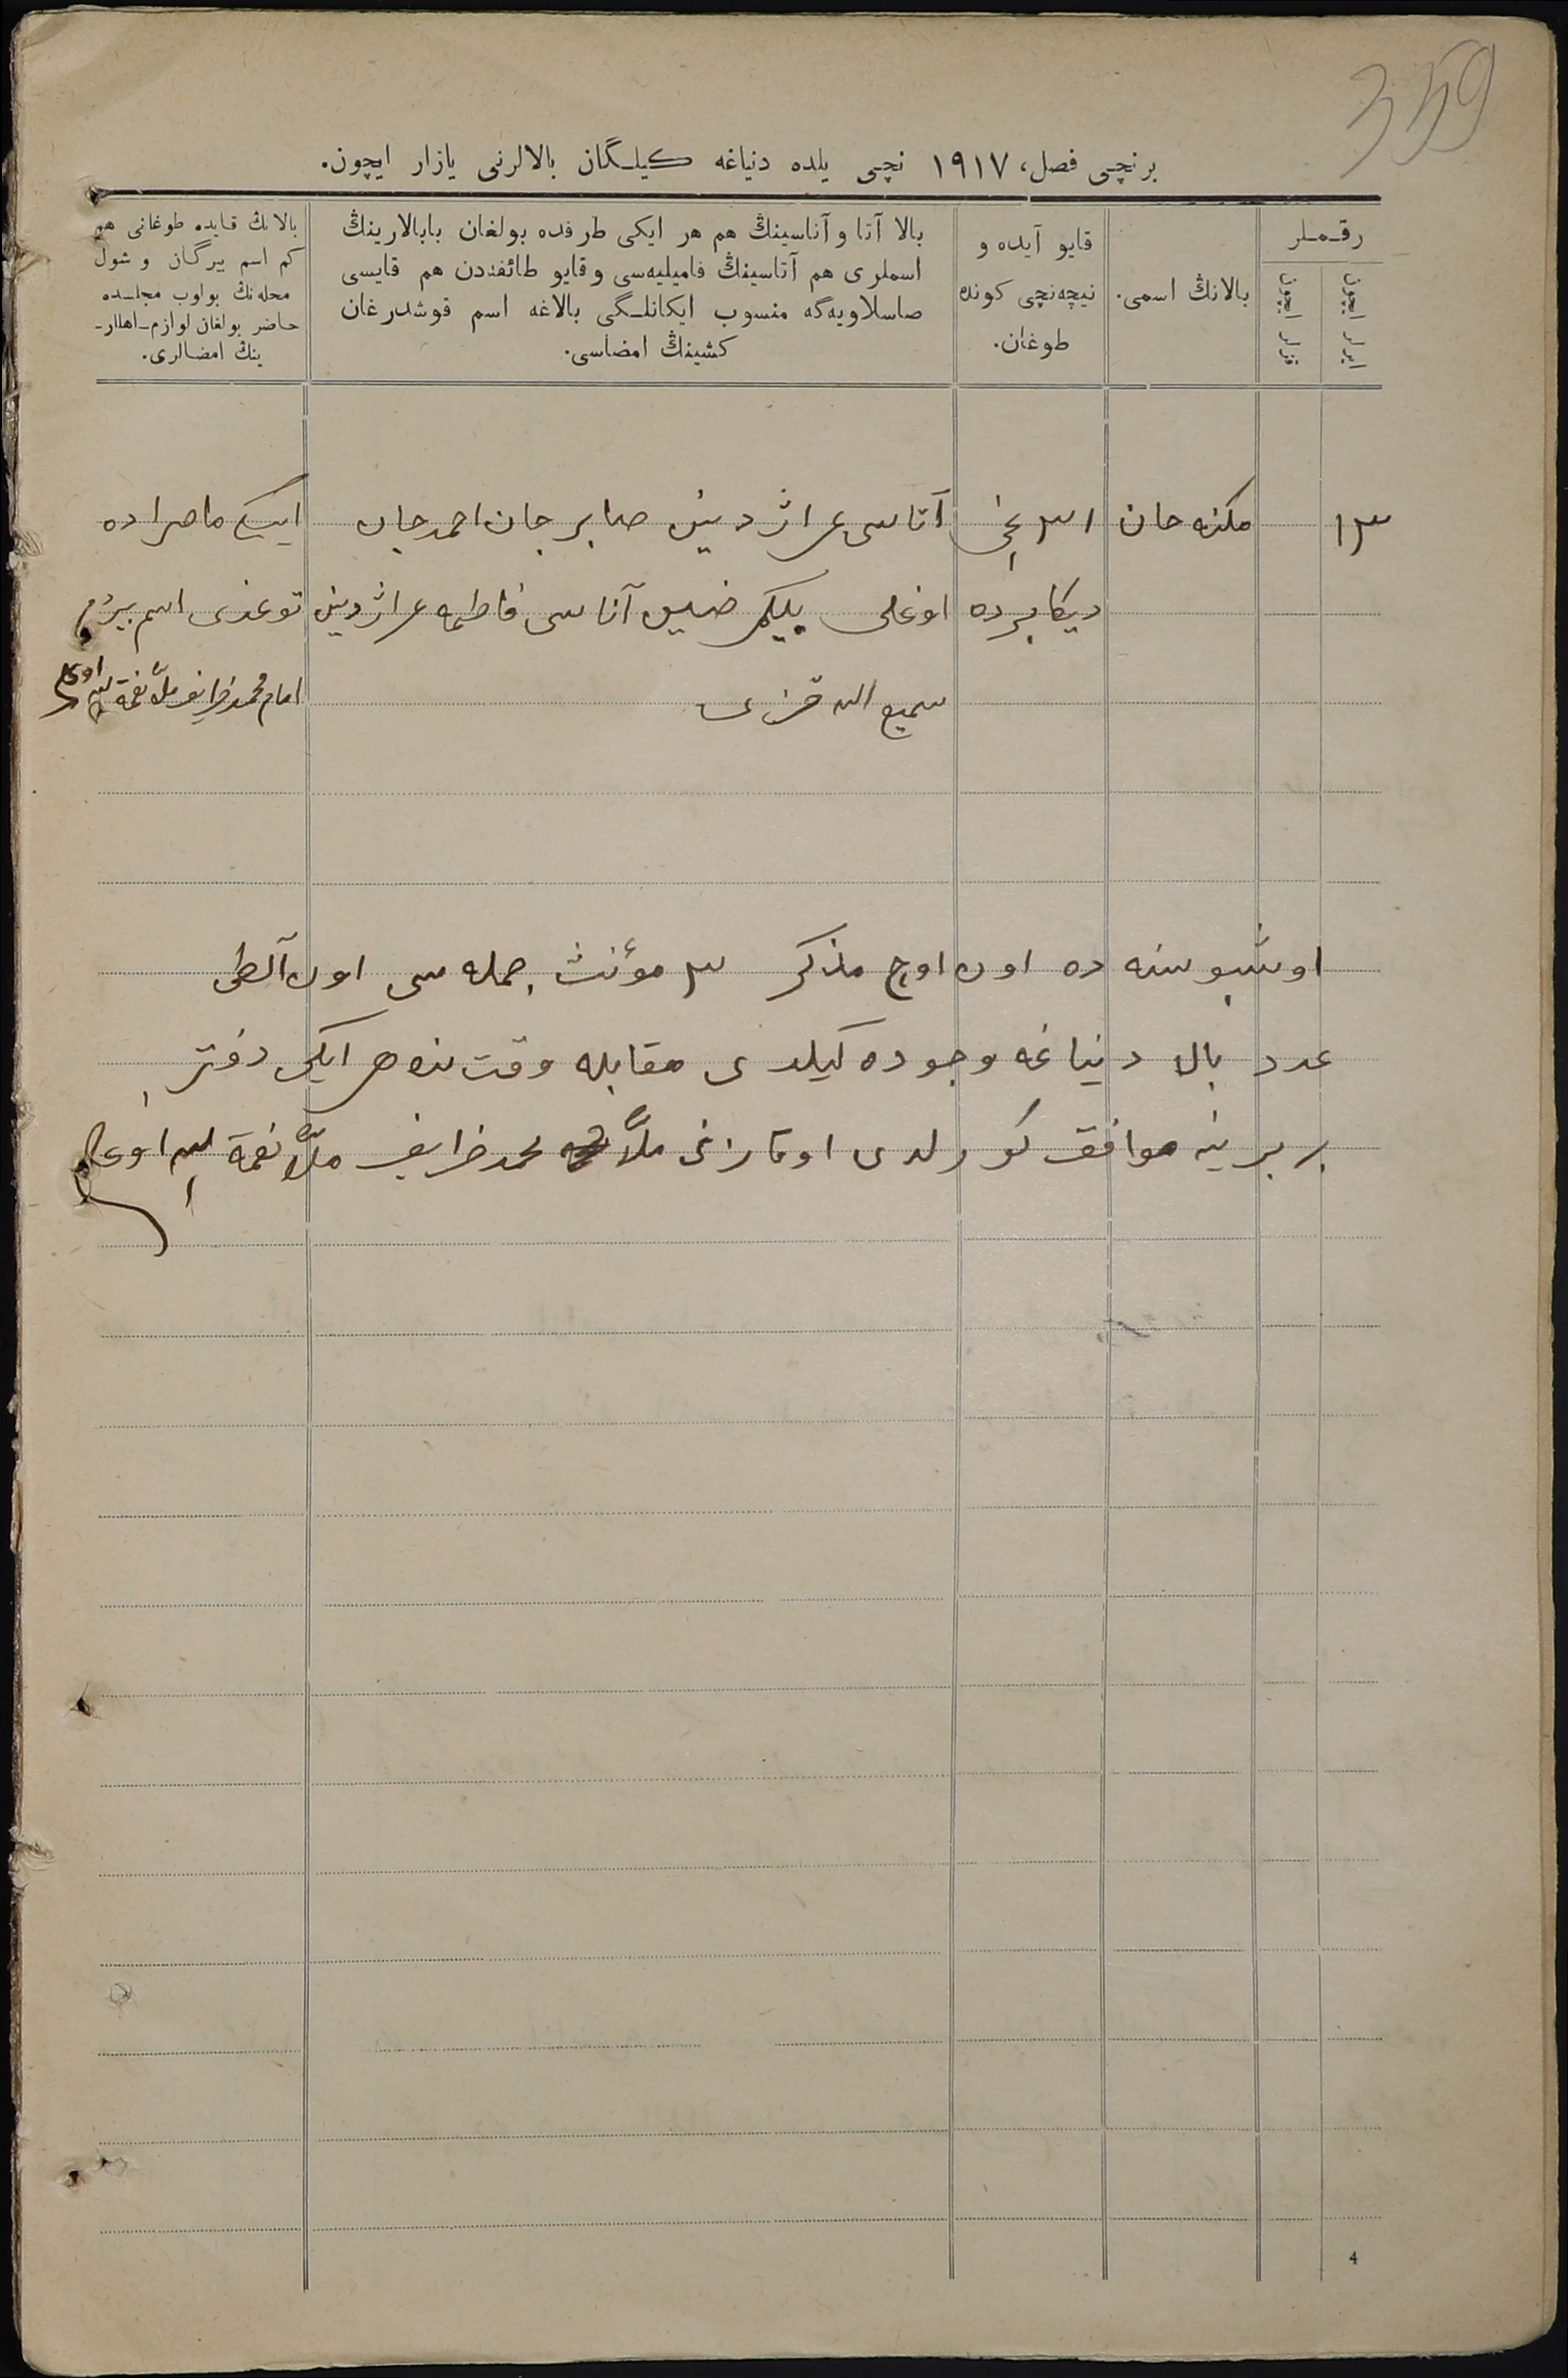 359
برنچی فصل، ١٩١٧ نچی یلده دنیاغه کیلـگان بالالرنی یازار ایچون.
رقـمـلر
ایرلر ایچون
قزلر ایچون
بالانڭ اسمی.
قایو آیده و
نیچه‌نچی کونده
طوغان.
بالا آتا و آناسینڭ هم هر ایکی طرفده بولغان بابالارینڭ
اسملری هم آتاسینڭ فامیلیه‌سی و قایو طائفه‌دن هم قایسی
صاسلاویه‌گه منسوب ایکانلـگی بالاغه اسم قوشدرغان
کشینڭ امضاسی.
بالانڭ قایده طوغانی هم
کم اسم بیرگان و شول
محله‌نڭ بولوب مجلـسده
حاضر بولغان لوازم‌اهللر-
ینڭ امضالری.
١٣ ٣١ نچی آتاسی صابر جان احمد جان
دیکابرده اوغلی آناسی فاطمه توغدی اسم بیردم
سمیع الله قزی امام محمد ملّا نعمة الله اوغلی
اوشبو سنه ده اون اوچ مذکر ٣ مؤنث جمله سی اون آلطی
عدد بالا دنیاغه وجوده کیلدی مقابله وقت نده هر ایکی دفتر
بر برینه موافق کورلدی ملّا محمد ملّا نعمة الله اوغلی
4